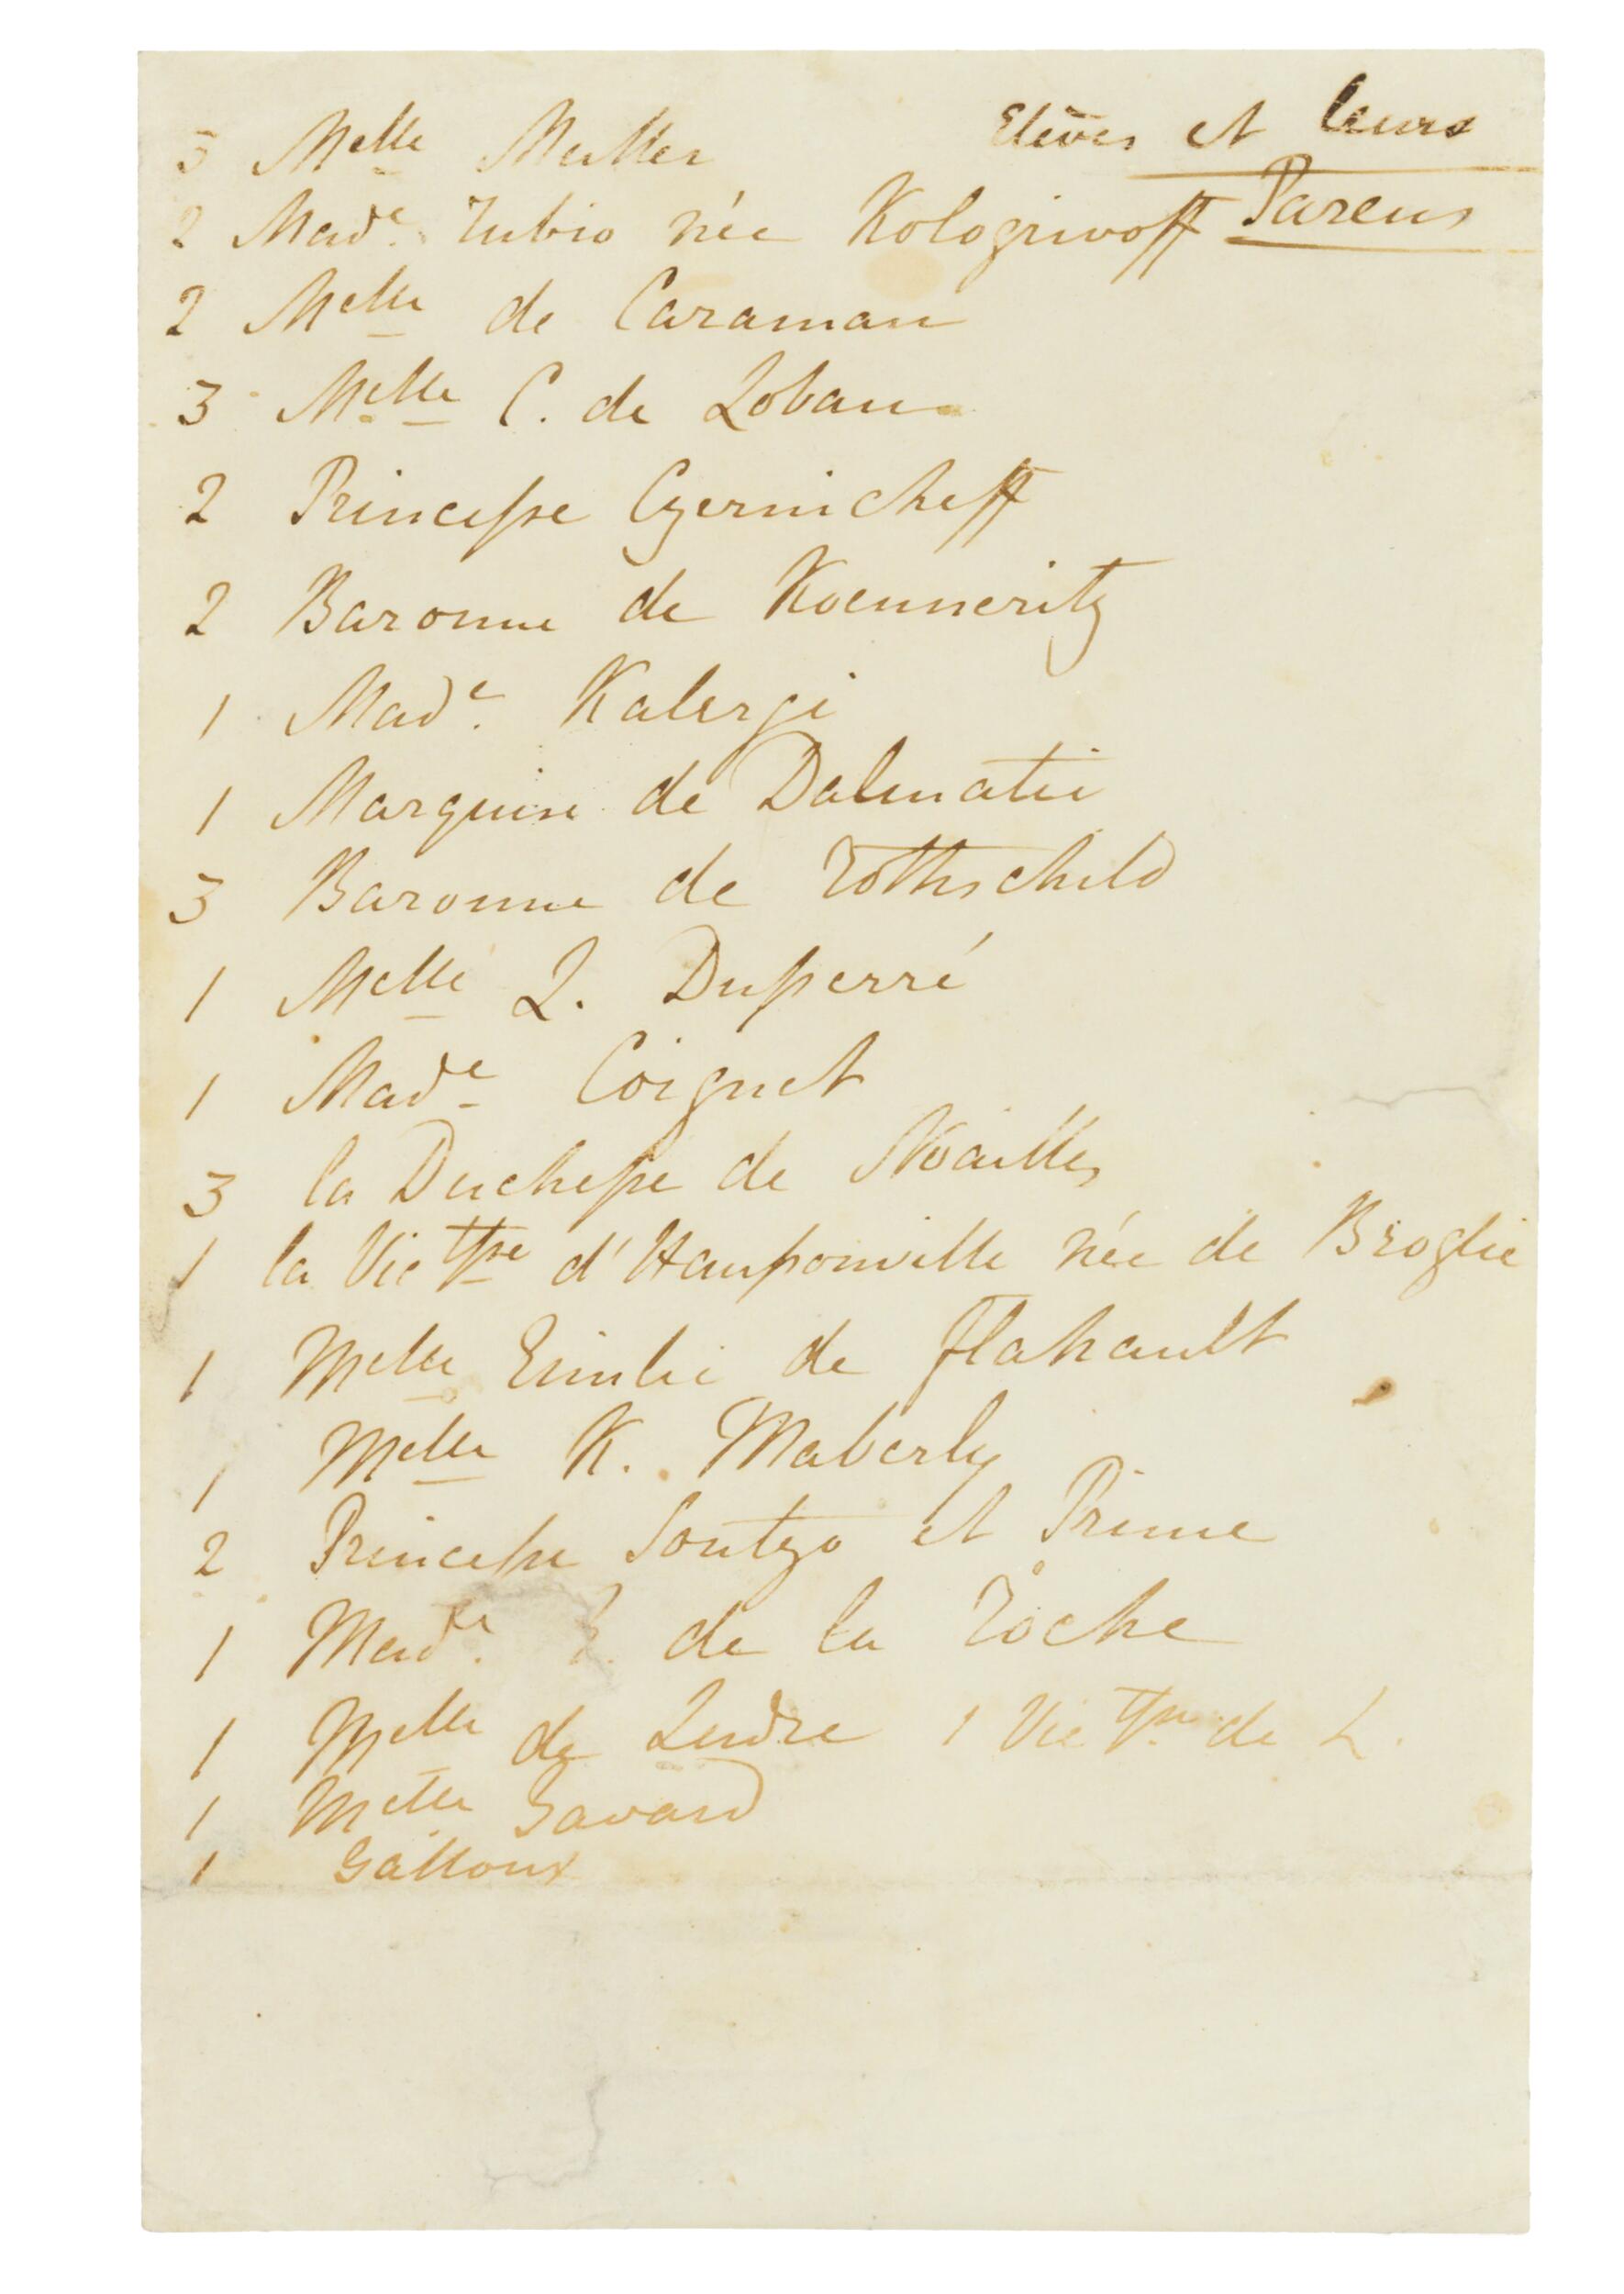 Elèves et leurs
Parens
3 Melle Muller
2 Made. Rubio née Kologrivoff
2 Melle de Caraman
3 Melle C. de Lobau
2 Princesse Czernicheff
2 Baronne de Koenneritz
1 Made. Kalergi
1 Marquise de Dalmatie
3 Baronne de Rothschild
1 Melle L. Duperré
1 Made Coignet
3 la Duchesse de Noailles
1 la Victsse d'Haussonville née de Broglie
1 Melle Emilie de Flahault
1 Melle K. Maberly
2 Princesse Soutzo et Prince
1 Made. de la Roche
1 Melle de Ludre 1 Victsse de L.
1 Melle Gavard
1 Galloux